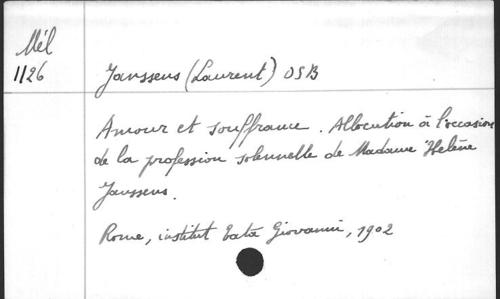 Mél
1126
Janssens (Laurent) OSB
Amour et souffrance. Allocution à l'occasion
de la profession solennelle de Madame Helène
Janssens.
Rome, institut Giovanni, 1902